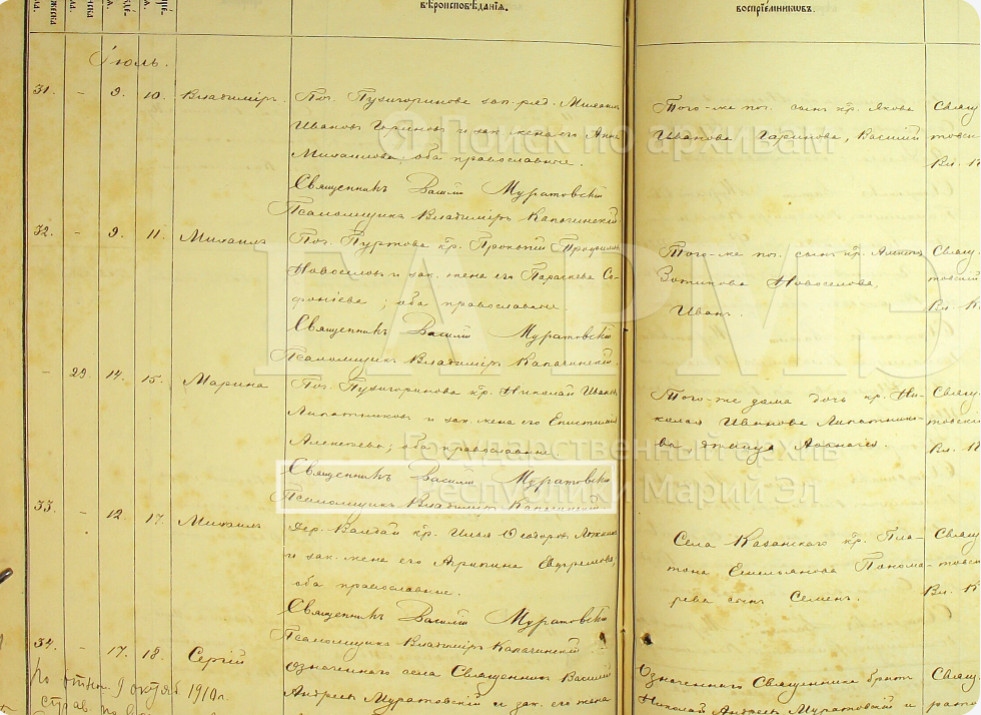 вѣроисповѣданія.
воспріемниковъ.
Іюль.
31. - 9. 10. Владиміръ.
Поч. Пухигоринова зап. ряд. Михаилъ
Ивановъ Гариновъ и зак. жена его Анна
Михаилова, оба православные.
Священникъ Василій Муратовскій
Псаломщикъ Владиміръ Капачинскій
Того-же поч. сынъ кр. Якова
Иванова Гаринова, Василій
Свящ.
Вл. К
32. - 9. 11. Михаилъ
Поч. Пуртова кр. Прокопій
Новоселовъ и зак. жена его Параскева Со-
фоніева; оба православные.
Священникъ Василій Муратовскій
Псаломщикъ Владиміръ Капачинскій.
Того-же поч. сынъ кр.
Зотикова Новоселова,
Иванъ.
Свящ.
товскій
Вл. К
- 29 14. 15. Марина
Поч. Пухигоринова кр. Николай Иванъ
Липатниковъ и зак. жена его Епистимія
Алексѣева; оба православные
Священникъ Василій Муратовскій
Псаломщикъ Владиміръ Капачинскій
Того-же дома дочь кр. Ни-
колая Иванова Липатнико-
ва дѣвица
Свящ.
товскій
Вл. К
33. - 12. 17. Михаилъ
Дер. кр. Илья Ѳеодоровъ
и зак. жена его Агрипина Евфремова,
оба православные.
Священникъ Василій Муратовскій
Псаломщикъ Владиміръ Капачинскій
Села Казанскаго кр. Пла-
тона Емельянова Понома-
рева сынъ Семенъ.
Свящ.
товскій
Вл. К
34. - 17. 18. Сергій
означеннаго села Священникъ Василій
Андреевъ Муратовскій и зак. его жена
Означеннаго Священника братъ
Николай Андреевъ Муратовскій и
Свящ.
9 октяб 1910г.
Я Поиск по архивам
ГАРМЭ
Государственный архив
Республики Марий Эл